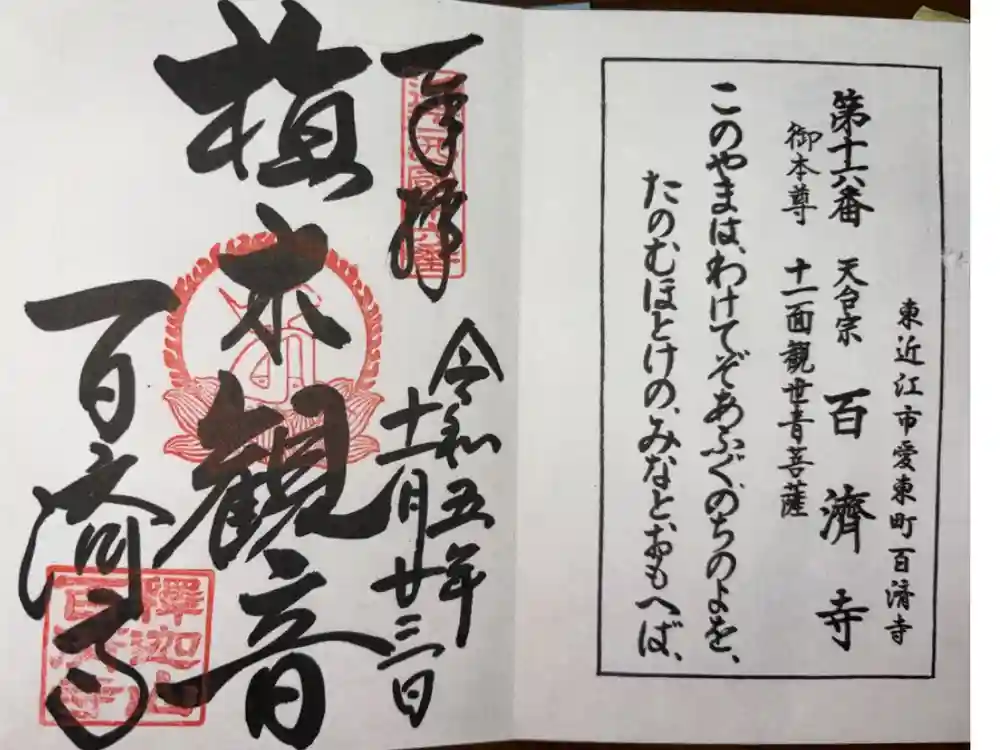 東近江市愛東町百済寺
第十六番 天台宗 百濟寺
御本尊 十一面観世音菩薩
このやまは、わけてぞあふぐのちのよを、
たのむほとけの、みなとおもへば、
奉拝
令和五年
十一月廿三日
植木観音
百済寺
釋迦山
百濟寺